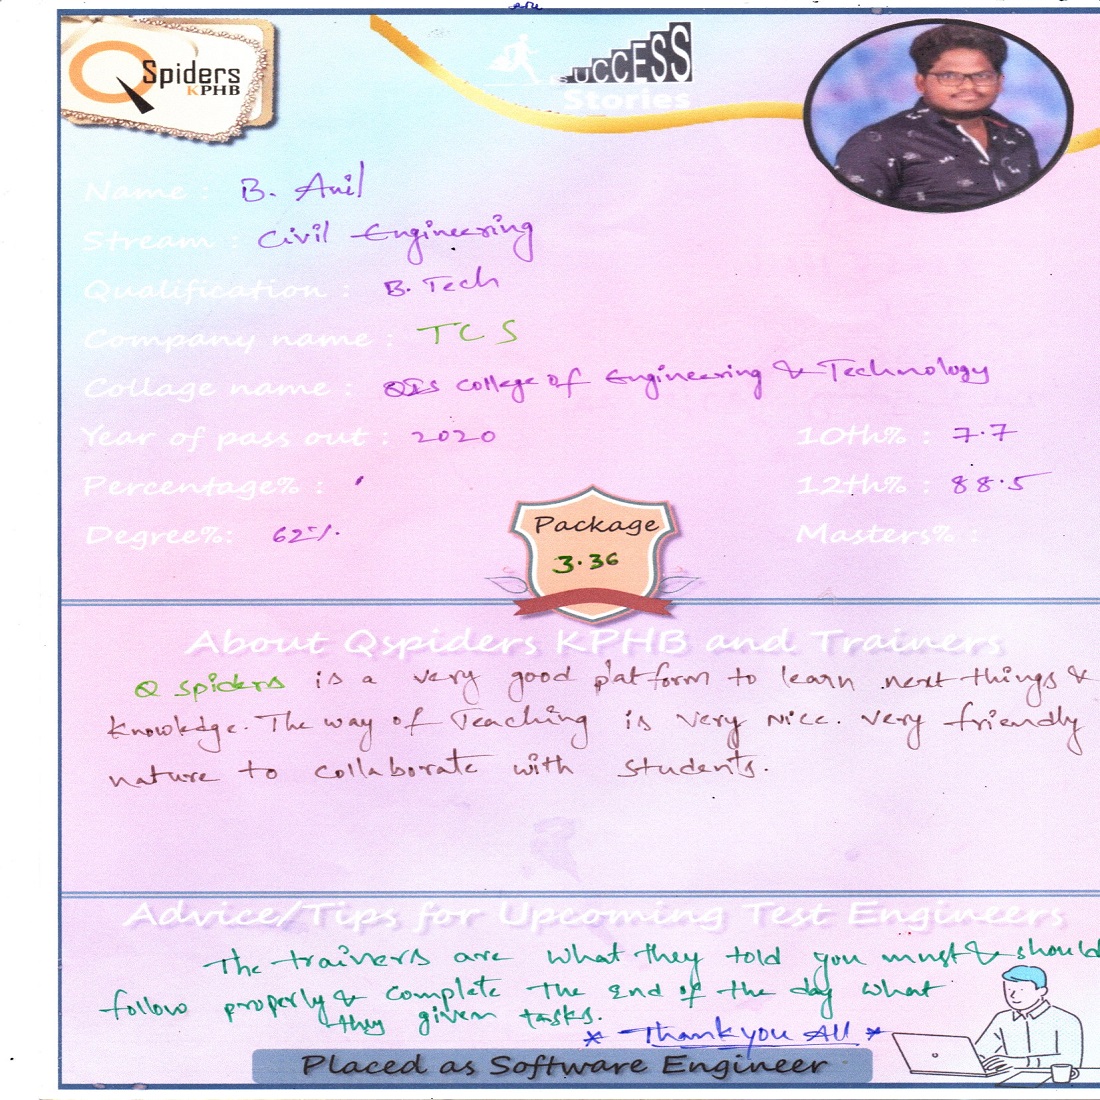 Q Spiders
KPHB
SUCCESS
Stories
Name : B. Anil
Stream : Civil Engineering
Qualification : B. Tech
Company name : TCS
Collage name : QIS College of Engineering & Technology
Year of pass out : 2020
10th% : 7.7
Percentage% :
12th% : 88.5
Degree%: 62%.
Masters% :
Package
3.36
About Qspiders KPHB and Trainers
Q spiders is a very good platform to learn next things &
knowledge. The way of Teaching is very nice. very friendly
nature to collaborate with students.
Advice/Tips for Upcoming Test Engineers
The trainers are what they told you must & should
follow properly & complete the end of the day what
they given tasks.
* Thank you All *
Placed as Software Engineer